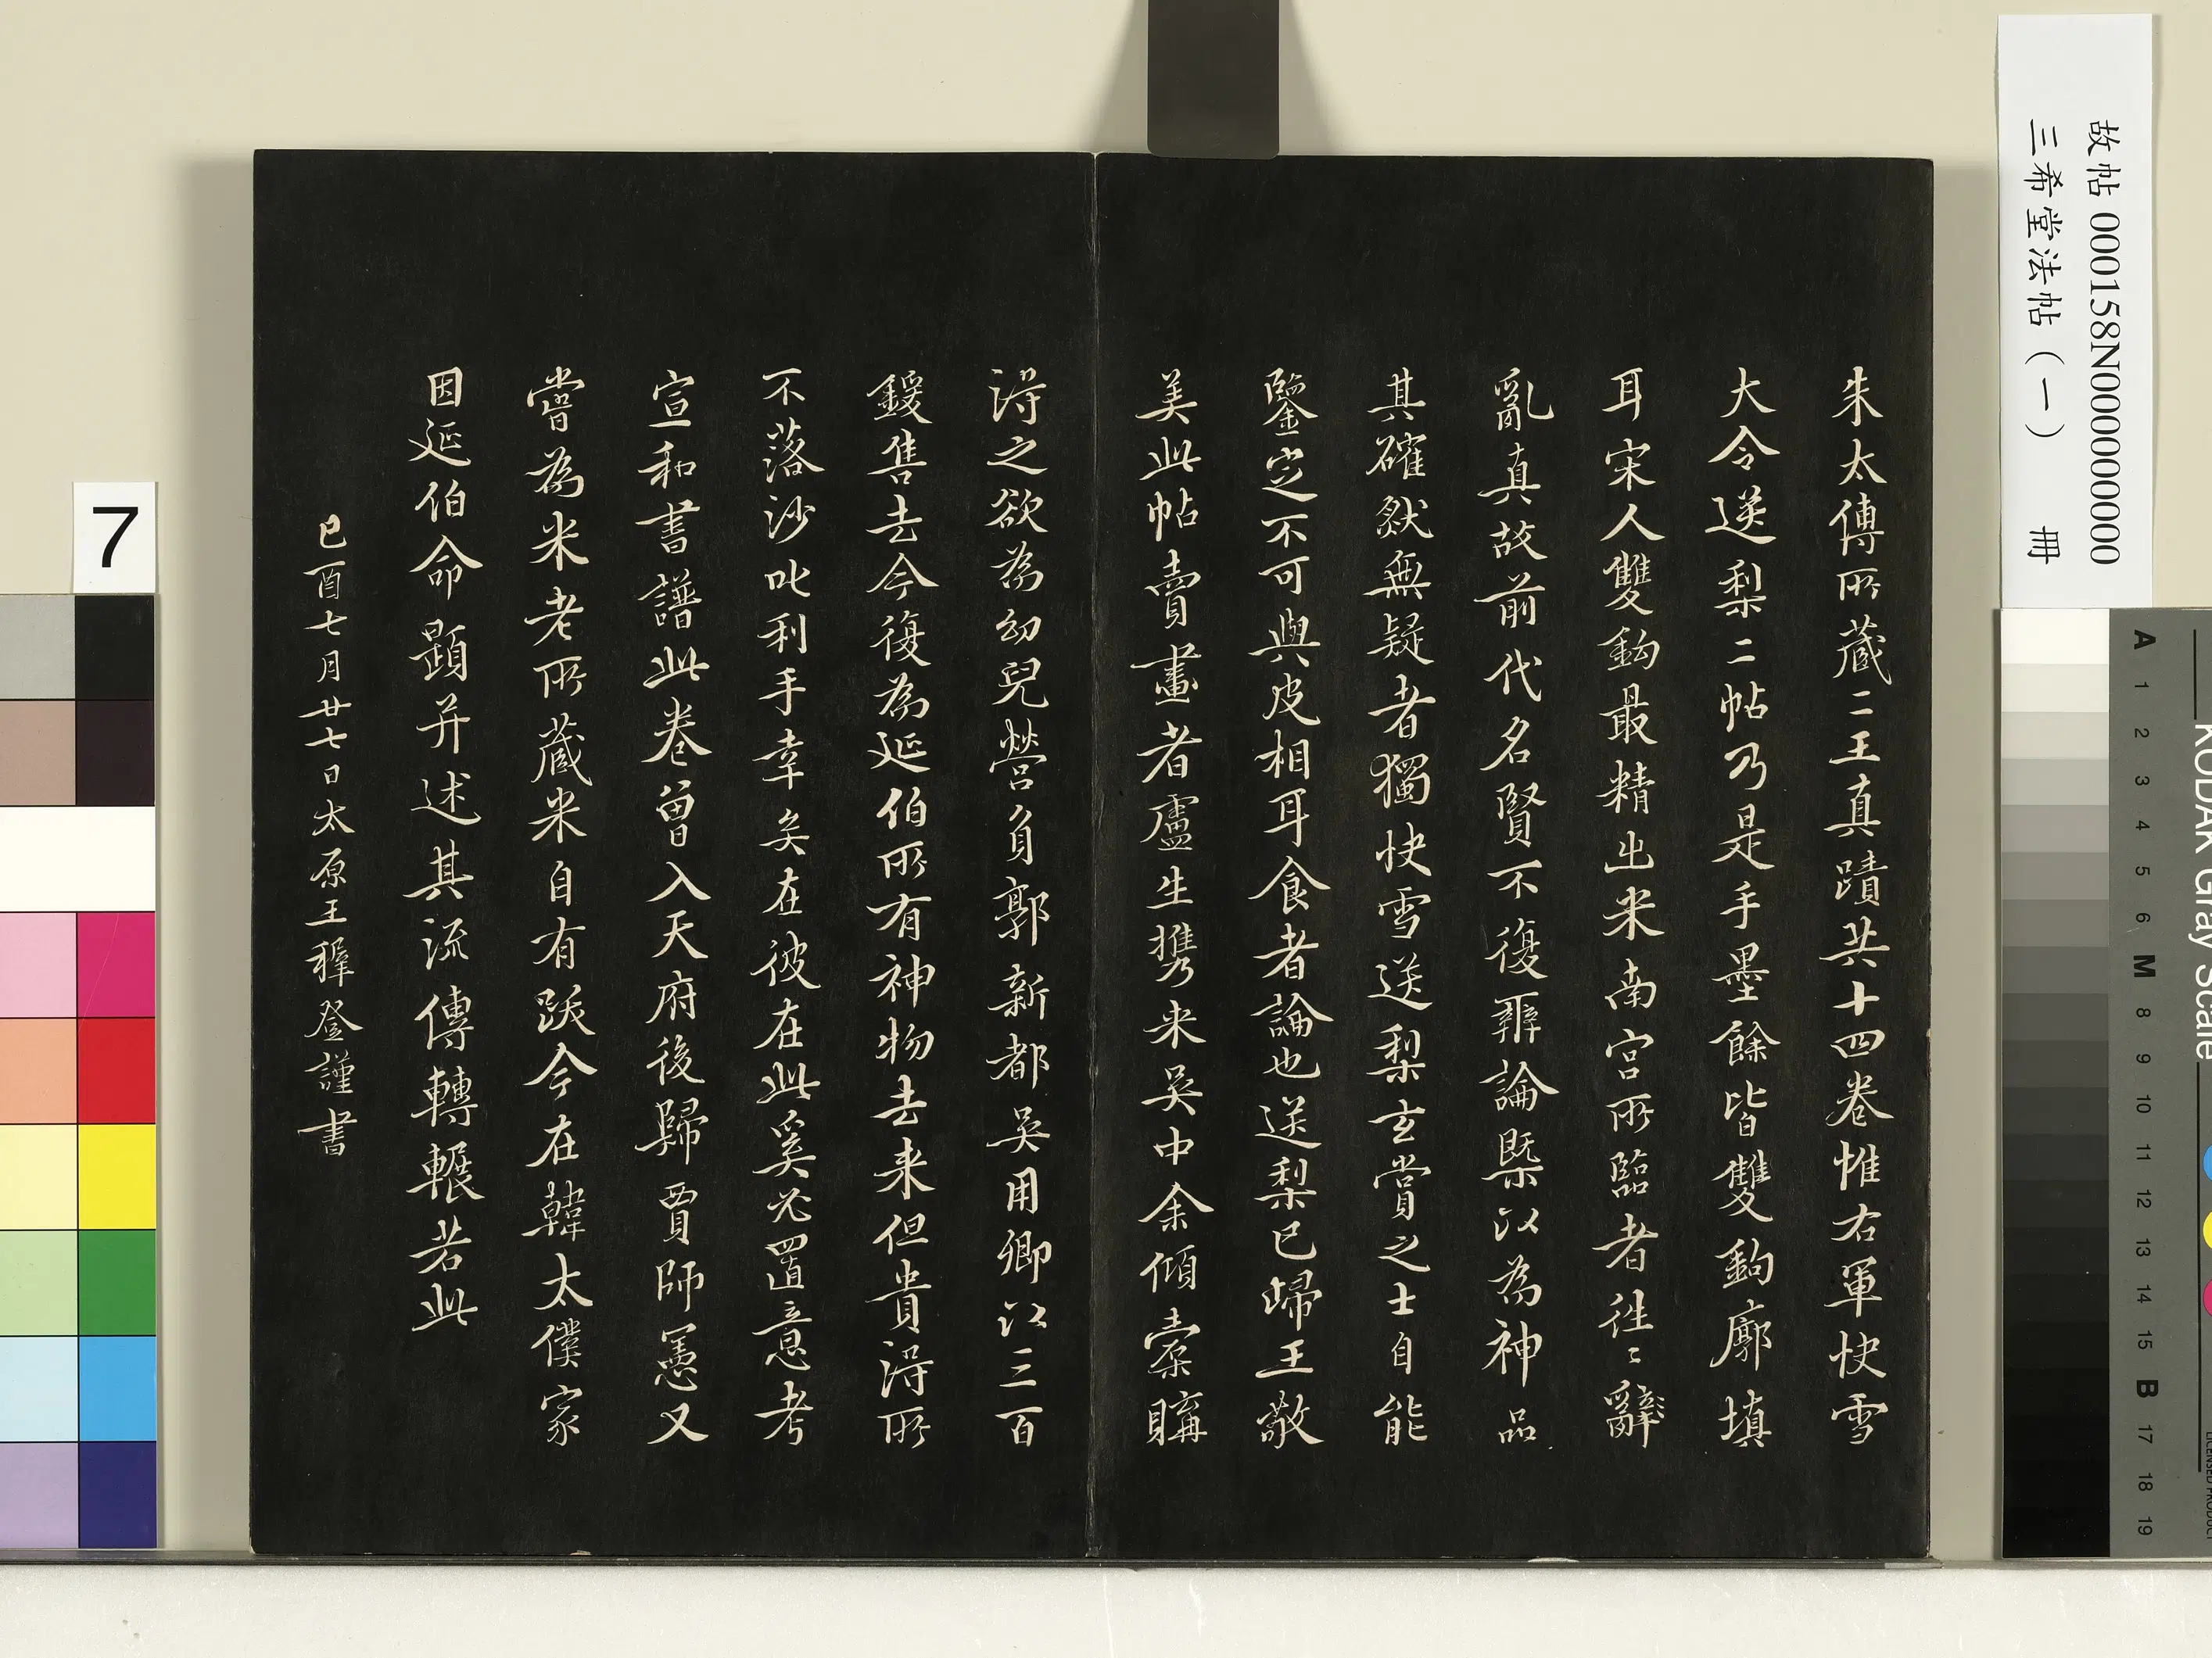 朱太傅所藏二王真蹟共十四卷惟右軍快雪
大令送梨二帖乃是手墨餘皆雙鉤廓填
耳宋人雙鉤最精出米南宮所臨者往〻辭
亂真故前代名賢不復辨論槩以為神品
其確然無疑者獨快雪送梨玄賞之士自能
鑒定不可與皮相耳食者論也送梨已歸王敬
美此帖賣畫者盧生攜來吳中余傾橐購
得之欲為幼兒營負郭新都吳用卿以三百
鍰售去今復為延伯所有神物去来但貴得所
不落沙吒利手幸矣在彼在此奚必置意考
宣和書譜此卷曾入天府後歸賈師憲又
嘗為米老所藏米自有跋今在韓太僕家
因延伯命題并述其流傳轉輾若此
己酉七月廿七日太原王穉登謹書
故帖 000158N000000000
三希堂法帖（一） 冊
7
KODAK Gray Scale
A 1 2 3 4 5 6 M 8 9 10 11 12 13 14 15 B 17 18 19